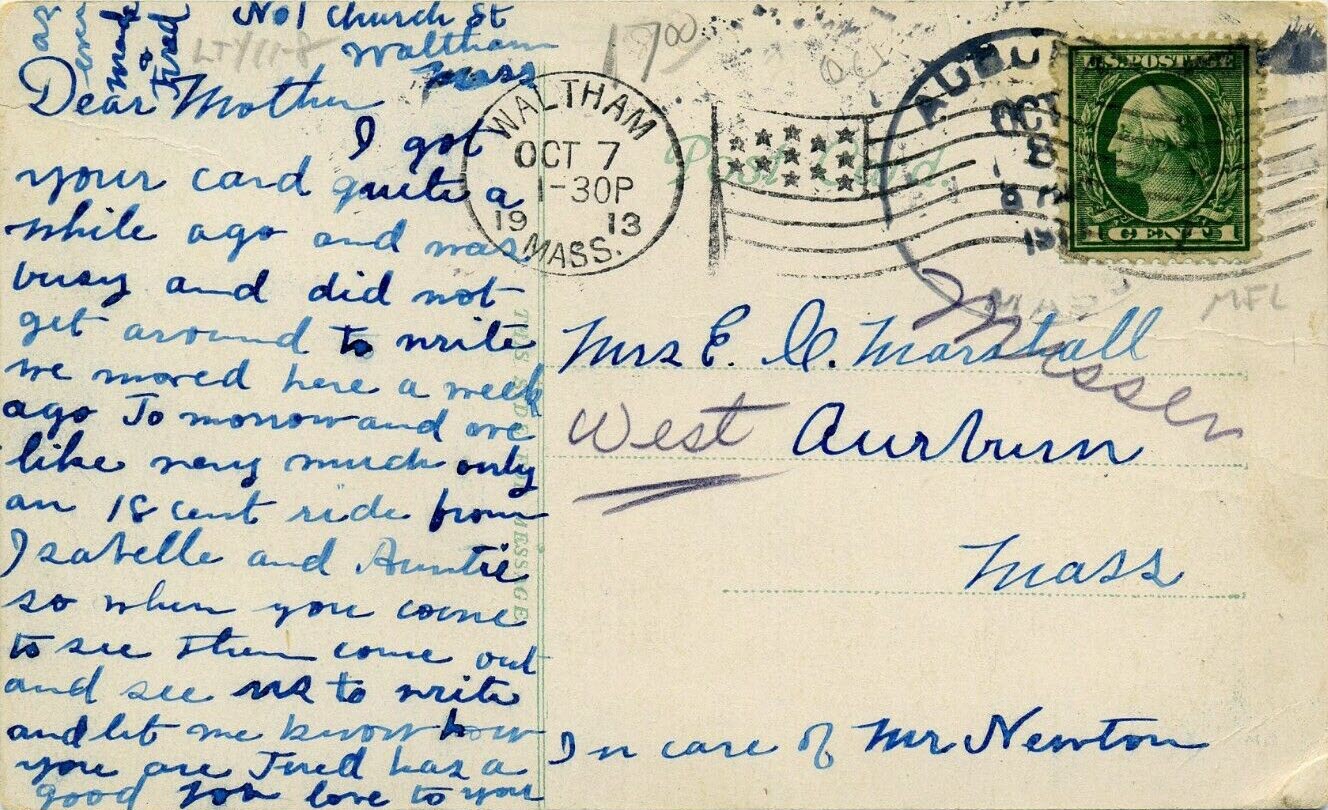 No 1 Church St
Waltham
Mass
Fred
LT/11-8
17.00
Dear Mother
I got
your card quite a
while ago and was
busy and did not
get around to write
we moved here a week
ago To morrow and are
like very much only
an 18 cent ride from
Isabelle and Auntie
so when you come
to see them come out
and see us to write
and let me know how
you are Fred has a
good job love to your
THIS SIDE MESSAGE
WALTHAM
OCT 7
1-30P
19 13
MASS.
Post Card.
OCT
8
U.S. POSTAGE
1 CENT 1
MFL
Mrs E. C. Marshall
West Aurburn
Mass
In care of Mr Newton